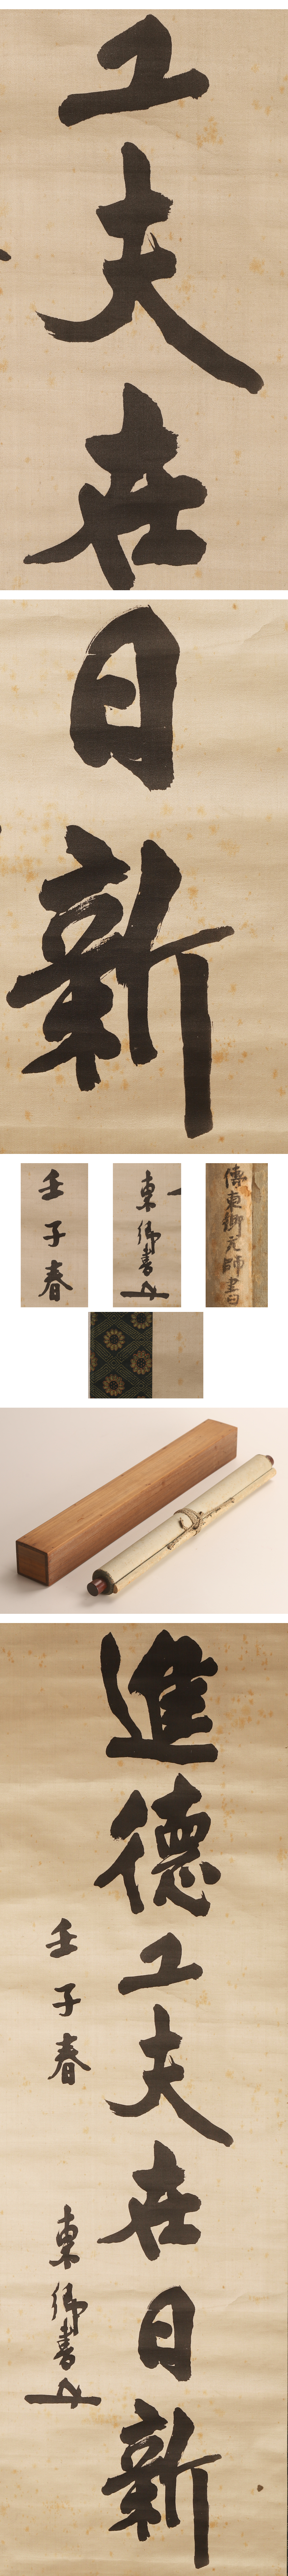 工夫在
日新
壬子春
東郷書
傳東郷元帥書
進德工夫在日新
壬子春
東郷書